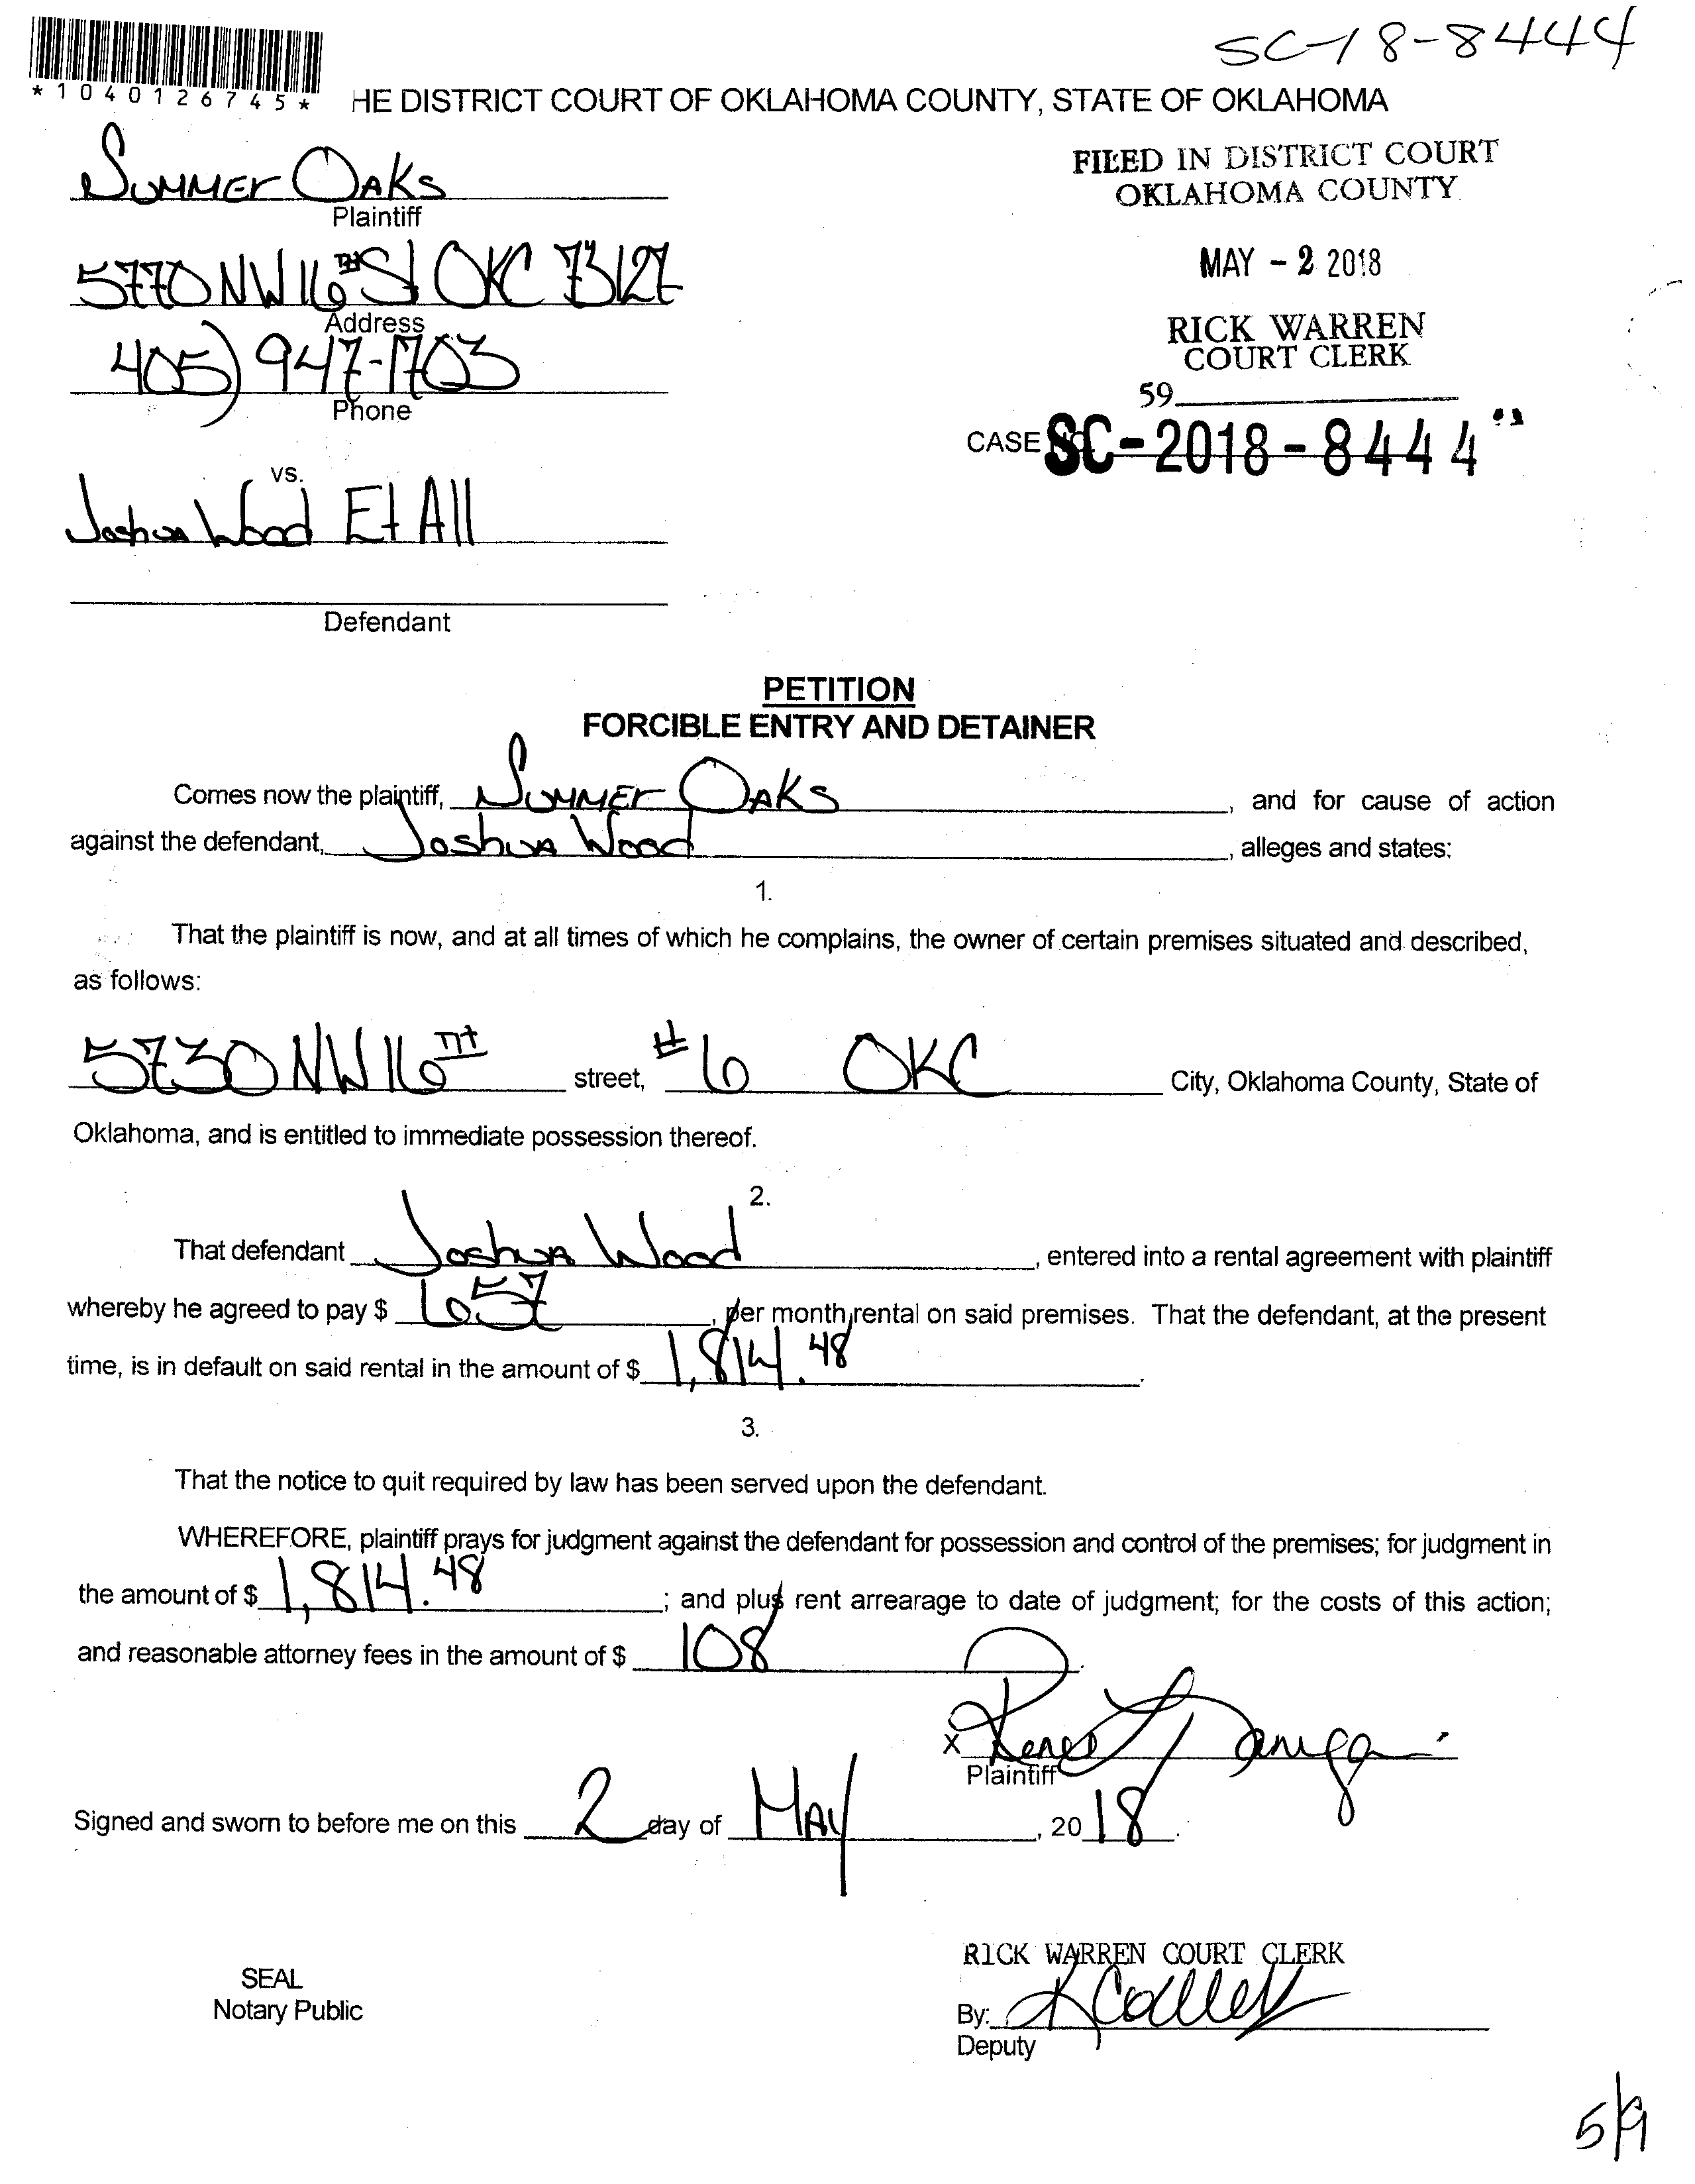 SC-18-8444
*1040126745*
HE DISTRICT COURT OF OKLAHOMA COUNTY, STATE OF OKLAHOMA
Summer Oaks
Plaintiff
FILED IN DISTRICT COURT
OKLAHOMA COUNTY
5770 NW 16TH St OKC 73127
Address
MAY - 2 2018
405) 947-1703
Phone
RICK WARREN
COURT CLERK
59
CASE NO. SC-2018-8444
vs.
Joshua Wood Et All
Defendant
PETITION
FORCIBLE ENTRY AND DETAINER
Comes now the plaintiff, Summer Oaks, and for cause of action
against the defendant, Joshua Wood, alleges and states:
1.
That the plaintiff is now, and at all times of which he complains, the owner of certain premises situated and described,
as follows:
5730 NW 16TH street, #6 OKC City, Oklahoma County, State of
Oklahoma, and is entitled to immediate possession thereof.
2.
That defendant Joshua Wood, entered into a rental agreement with plaintiff
whereby he agreed to pay $ 657, per month rental on said premises. That the defendant, at the present
time, is in default on said rental in the amount of $ 1,814.48.
3.
That the notice to quit required by law has been served upon the defendant.
WHEREFORE, plaintiff prays for judgment against the defendant for possession and control of the premises; for judgment in
the amount of $ 1,814.48; and plus rent arrearage to date of judgment; for the costs of this action;
and reasonable attorney fees in the amount of $ 108.
X
Plaintiff
Signed and sworn to before me on this 2 day of May, 2018.
RICK WARREN COURT CLERK
SEAL
Notary Public
By:
Deputy
5/9